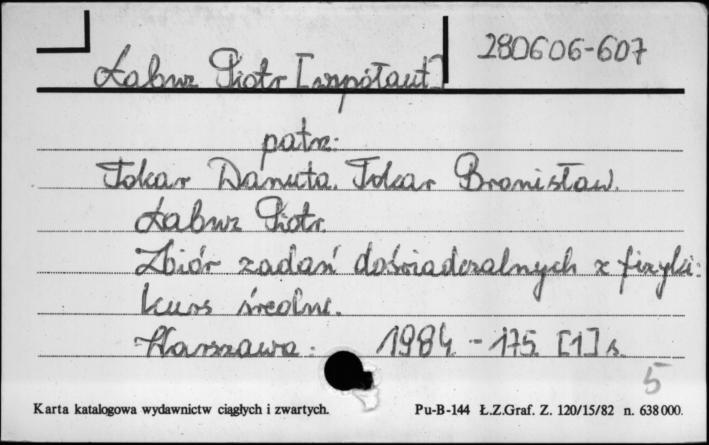 280606-607
Łabuz Piotr [współaut]
patrz:
Tokar Danuta. Tokar Bronisław.
Łabuz Piotr.
Zbiór zadań doświadczalnych z fizyki:
kurs średni.
Warszawa: 1984. - 175. [1] s.
5
Karta katalogowa wydawnictw ciągłych i zwartych. Pu-B-144 Ł.Z.Graf. Z. 120/15/82 n. 638000.